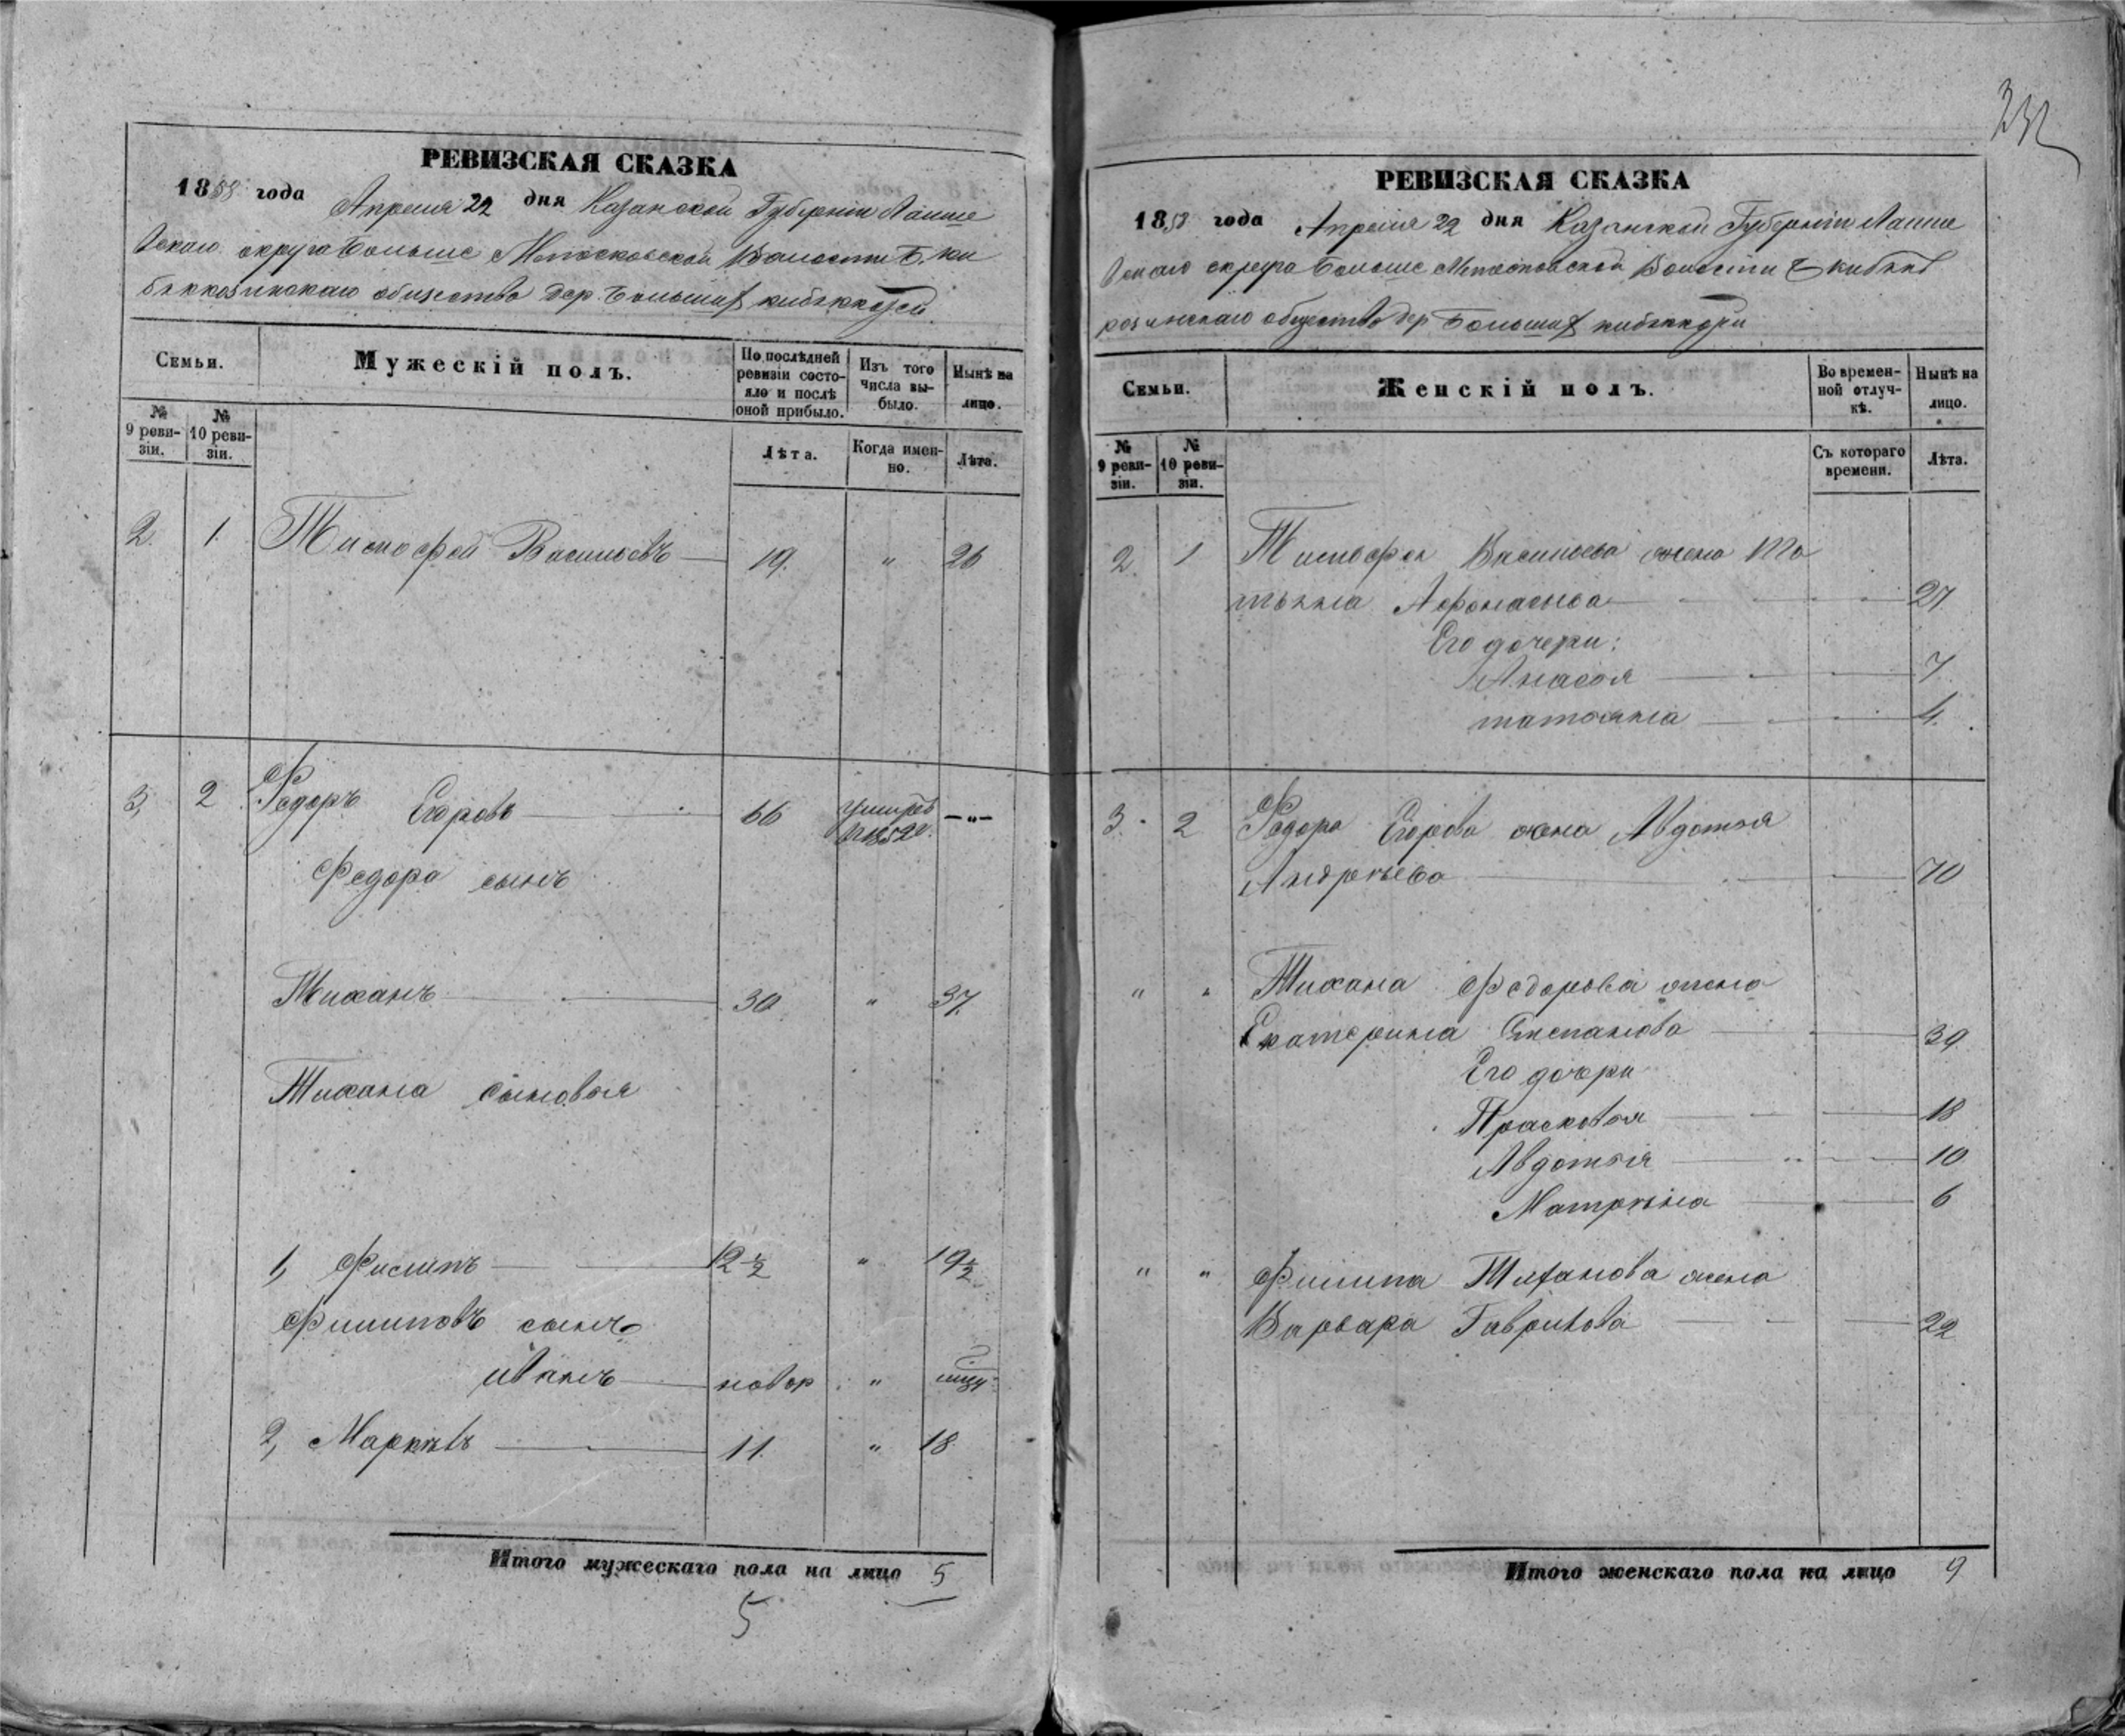 РЕВИЗСКАЯ СКАЗКА
1858 года Апреля 22 дня Казанской Губернiи Лаише
вскаго округа Больше Метесковской Волости Б. Ки
бяккозинскаго общества дер. Большихъ кибяккозей
Семьи.
Мужескiй полъ.
По послѣдней ревизiи состояло и послѣ оной прибыло.
Изъ того числа выбыло.
Нынѣ на лицо.
№ 9 ревизiи.
№ 10 ревизiи.
Лѣта.
Когда именно.
Лѣта.
2. 1. Тимофей Васильевъ 19. " 26
3, 2 Федоръ Егоровъ 66 умиръ въ 1852 г. —"—
Федора сынъ
Тиханъ 30 " 37.
Тихана сыновья
1, Филипъ 12 ½ " 19 ½
Филиповъ сынъ
иванъ новор " 
2, 11. " 18
Итого мужескаго пола на лицо 5
5
РЕВИЗСКАЯ СКАЗКА
1858 года Апреля 22 дня Казанской Губернiи Лаише
вскаго округа Больше Метесковской Волости Б кибяк
козинскаго общества дер Большихъ кибяккози
Семьи.
Женскiй полъ.
Во временной отлучкѣ.
Нынѣ на лицо.
№ 9 ревизiи.
№ 10 ревизiи.
Съ котораго времени.
Лѣта.
2. 1 Тимофея Васильева жена
Афонасьева 27
Его дочери:
7
татьяна 4.
3. 2 Федора Егорова жена Авдотья
Андреева 70
" " Тихана Федорова жена
Екатерина Степанова 39
Его дочери
Прасковья 18
Авдотья 10
Матрена 6
" " Филипа Тиханова жена
Варвара Гаврилова 22
Итого женскаго пола на лицо 9